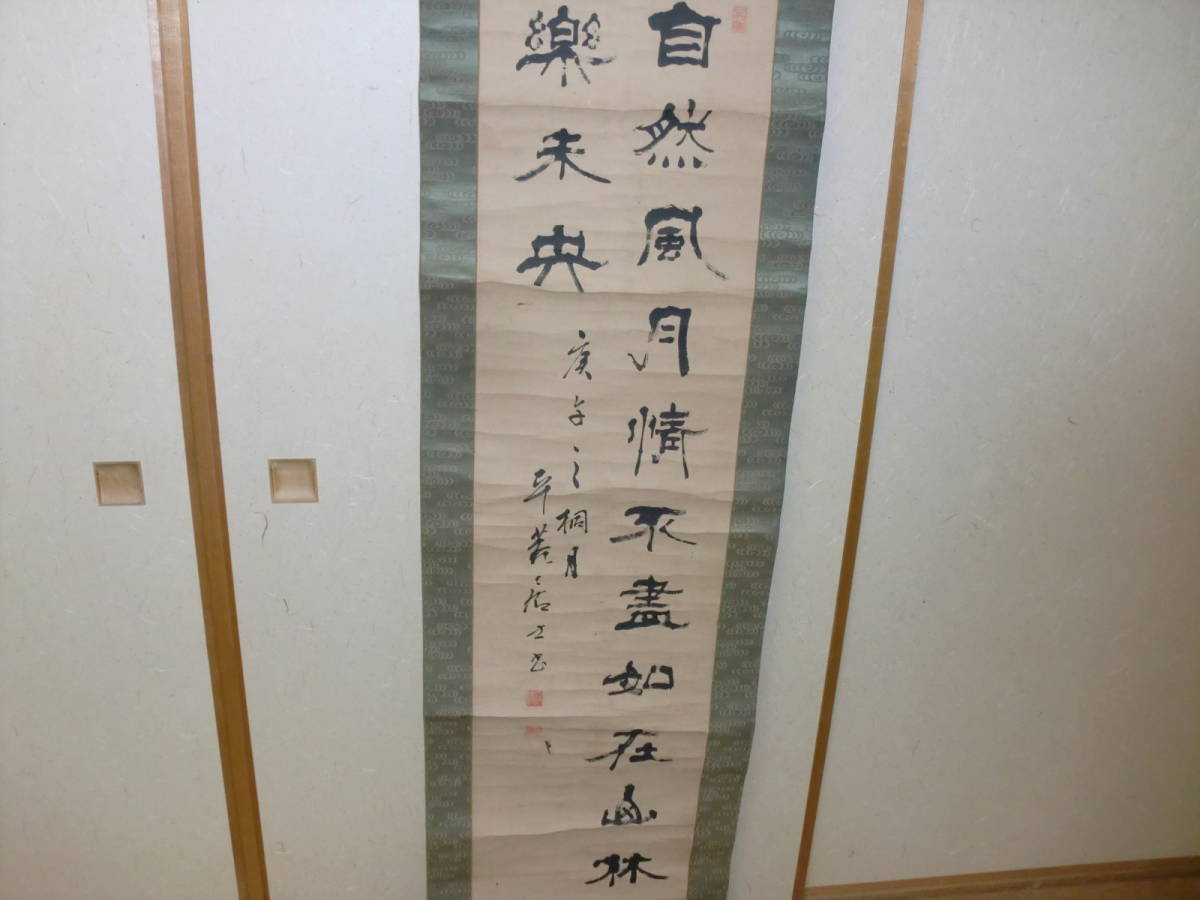 自然風月情不盡如在山林
樂未央
庚午之桐月
平
居士書